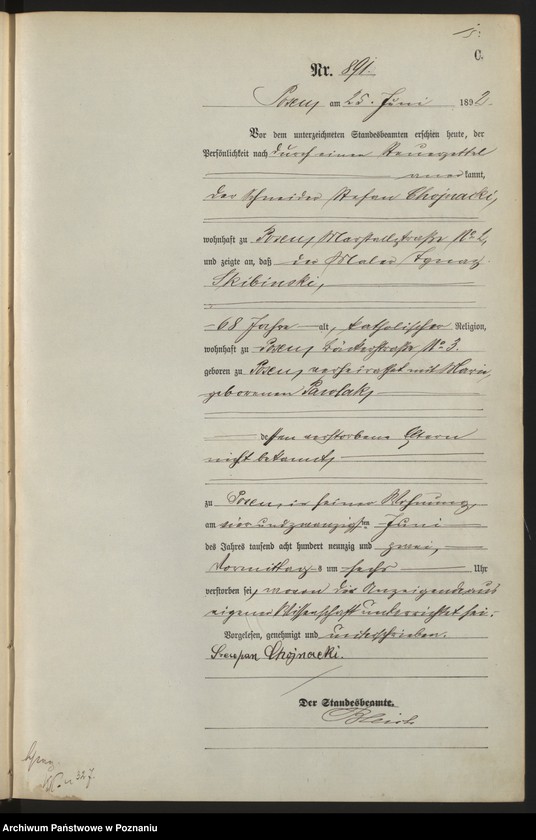 C.
Nr. 891.
Posen, am 25. Juni 1892.
Vor dem unterzeichneten Standesbeamten erschien heute, der
Persönlichkeit nach durch einen Steuerzettel
anerkannt,
der Schneider Stefan Chojnacki,
wohnhaft zu Posen, Marstallstraße, No 2,
und zeigte an, daß der Maler Ignaz
Skibinski,
68 Jahre alt, katholischer Religion,
wohnhaft zu Posen, Bäckerstraße, No 3.
geboren zu Posen, verheirathet mit Marie,
geborenen Pawlak,
dessen verstorbene Eltern
nicht bekannt,
zu Posen, in seiner Wohnung,
am vier und zwanzigsten Juni
des Jahres tausend acht hundert neunzig und zwei,
Vormittags um sechs Uhr
verstorben sei, wovon der Anzeigende aus
eigener Wissenschaft unterrichtet sei.
Vorgelesen, genehmigt und unterschrieben.
Szczepan Chojnacki.
Der Standesbeamte.
327.
Archiwum Państwowe w Poznaniu